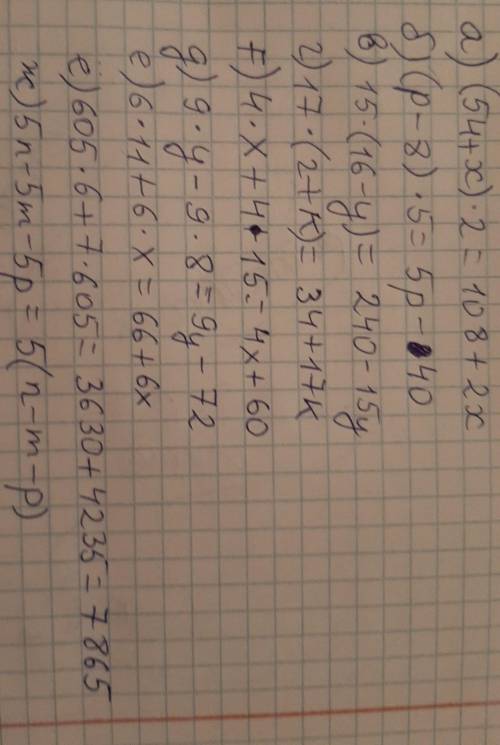 а) (54+x)·2=108+2x
б) (p-8)·5=5p-40
в) 15·(16-y)=240-15y
г) 17·(2+k)=34+17k
F) 4·x+4·15=4x+60
д) 9·y-9·8=9y-72
е) 6·11+6·x=66+6x
ё) 605·6+7·605=3630+4235=7865
ж) 5n-5m-5p=5(n-m-p)